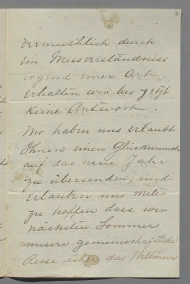 vermuthlich durch
ein Missverständniss
irgend einer Art
erhalten wir bis jetzt
keine Antwort.
Wir haben uns erlaubt
Ihnen einen Glückwunsch
auf das neue Jahr
zu übersenden, und
erlauben uns
zu hoffen dass wir
nächsten Sommer
unsere gemeinschaftliche
Reise über das